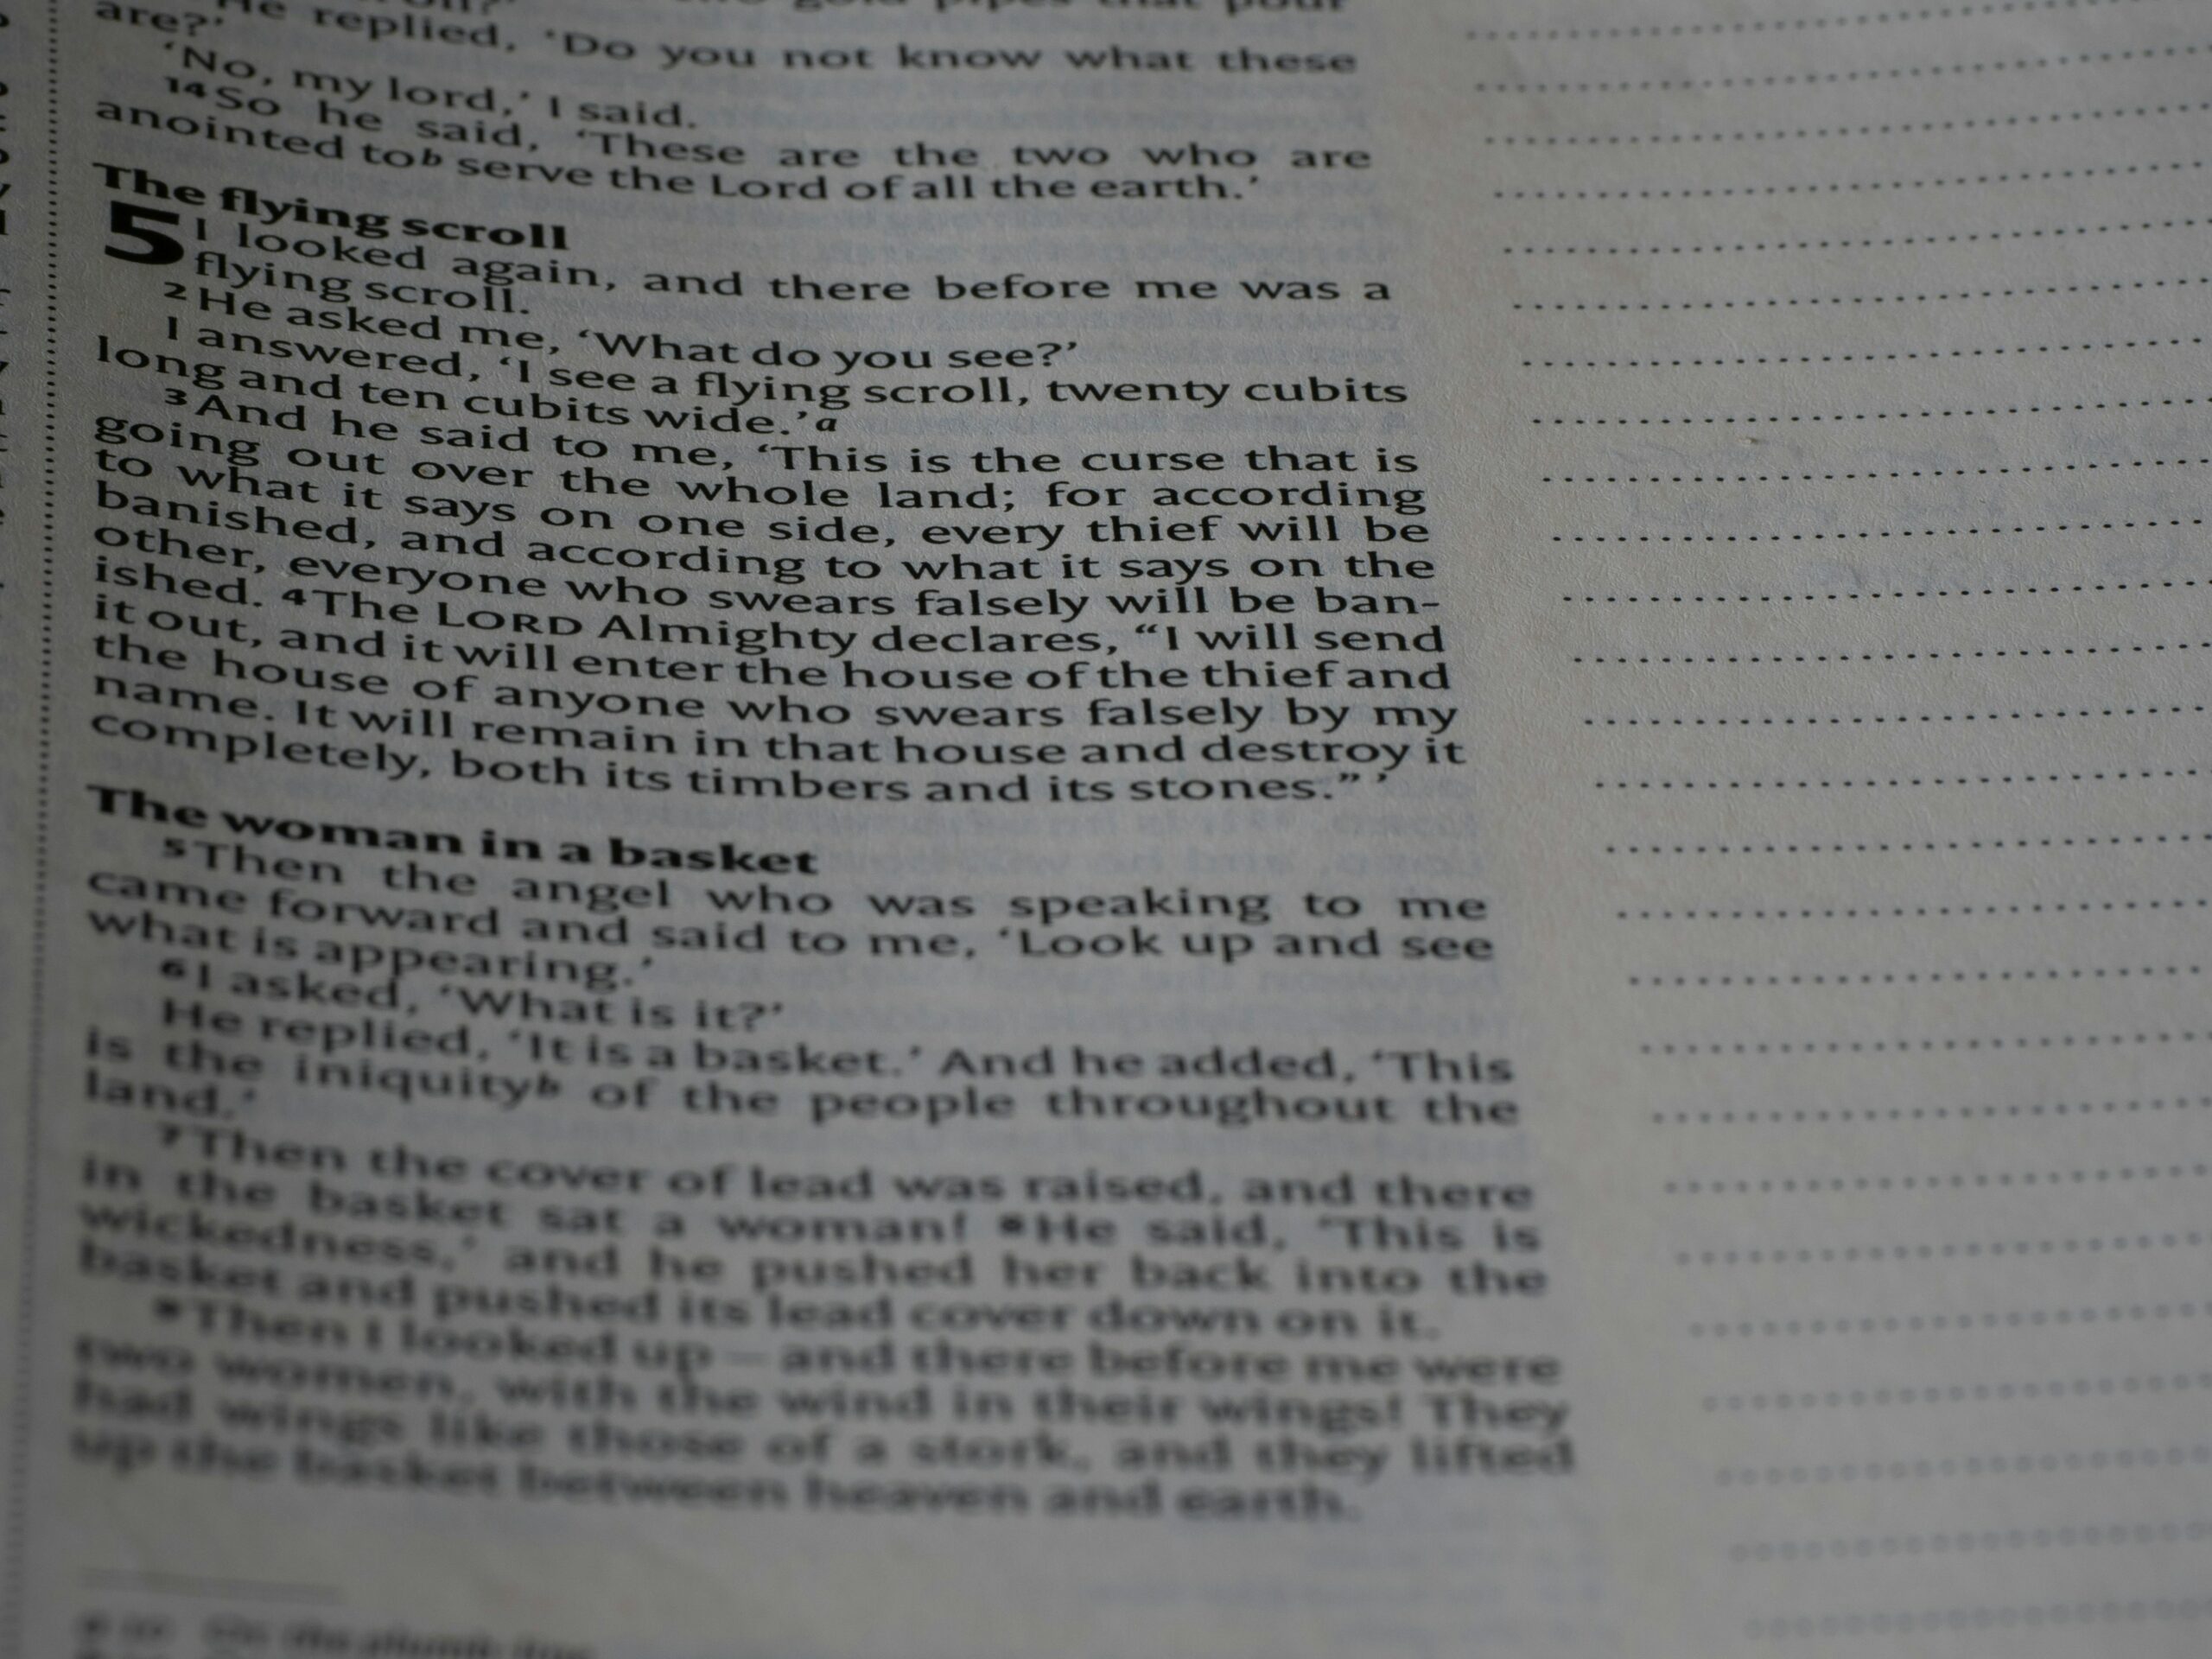 gold pipes that pour
He replied, ‘Do you not know what these
are?’
‘No, my lord,’ I said.
14 So he said, ‘These are the two who are
anointed to b serve the Lord of all the earth.’
The flying scroll
5 I looked again, and there before me was a
flying scroll.
2 He asked me, ‘What do you see?’
I answered, ‘I see a flying scroll, twenty cubits
long and ten cubits wide.’ a
3 And he said to me, ‘This is the curse that is
going out over the whole land; for according
to what it says on one side, every thief will be
banished, and according to what it says on the
other, everyone who swears falsely will be ban-
ished. 4 The LORD Almighty declares, “I will send
it out, and it will enter the house of the thief and
the house of anyone who swears falsely by my
name. It will remain in that house and destroy it
completely, both its timbers and its stones.” ’
The woman in a basket
5 Then the angel who was speaking to me
came forward and said to me, ‘Look up and see
what is appearing.’
6 I asked, ‘What is it?’
He replied, ‘It is a basket.’ And he added, ‘This
is the iniquity b of the people throughout the
land.’
7 Then the cover of lead was raised, and there
in the basket sat a woman! 8 He said, ‘This is
wickedness,’ and he pushed her back into the
basket and pushed its lead cover down on it.
9 Then I looked up – and there before me were
two women, with the wind in their wings! They
had wings like those of a stork, and they lifted
up the basket between heaven and earth.